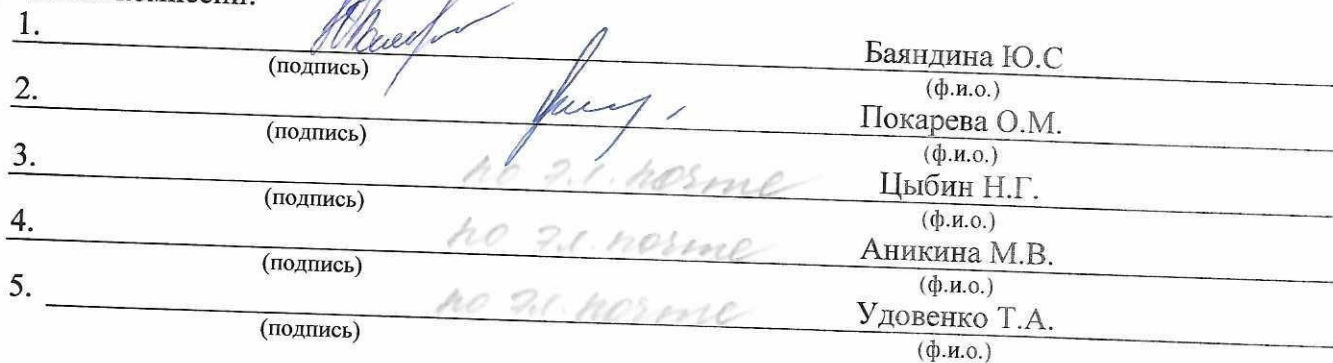 1. Баяндина Ю.С
(подпись) (ф.и.о.)
2. Покарева О.М.
(подпись) (ф.и.о.)
3. по эл. почте Цыбин Н.Г.
(подпись) (ф.и.о.)
4. по эл. почте Аникина М.В.
(подпись) (ф.и.о.)
5. по эл. почте Удовенко Т.А.
(подпись) (ф.и.о.)